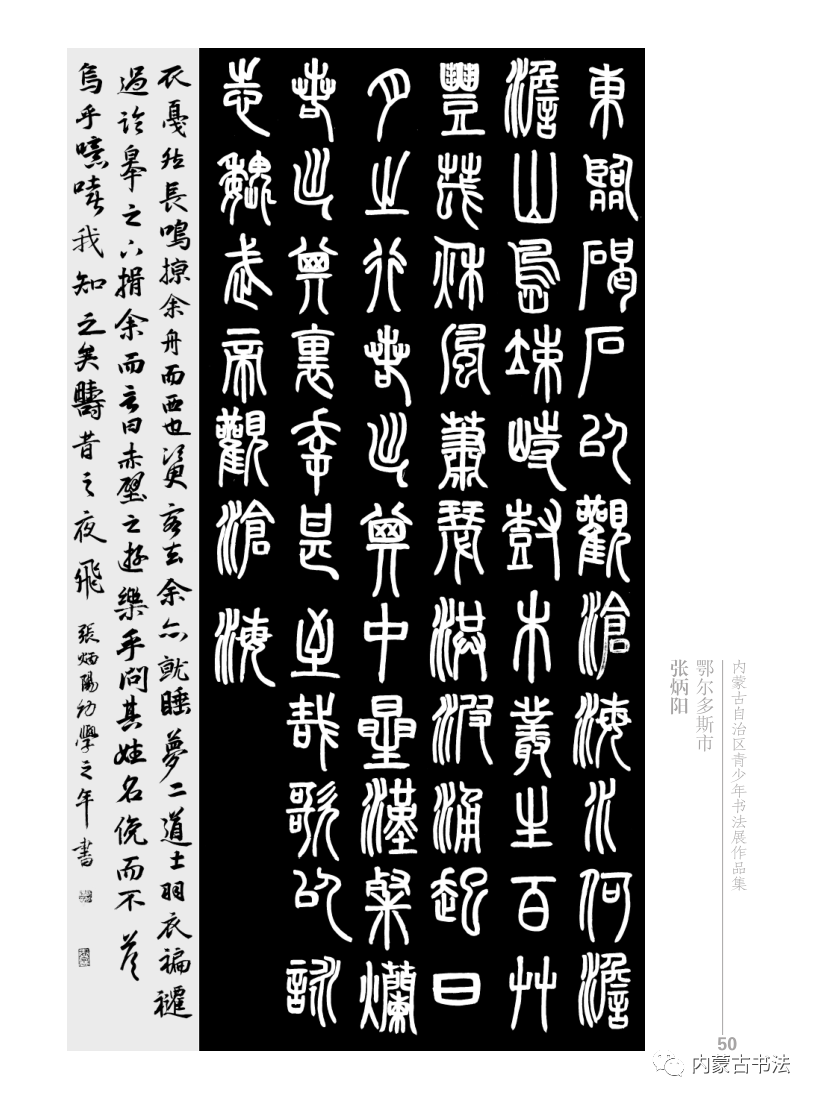 東臨碣石以觀滄海水何澹
澹山島竦峙樹木叢生百艸
豐茂秋風蕭瑟洪波涌起日
月之行若出其中星漢粲爛
若出其裏幸甚至哉歌以詠
志魏武帝觀滄海
衣戛然長鳴掠余舟而西也須臾客去余亦就睡夢二道士羽衣褊褼
過臨皋之下揖余而言曰赤壁之遊樂乎問其姓名俛而不答
烏乎噫嘻我知之矣疇昔之夜飛
張炳陽幼學之年書
内蒙古自治区青少年书法展作品集
鄂尔多斯市
张炳阳
50
内蒙古书法